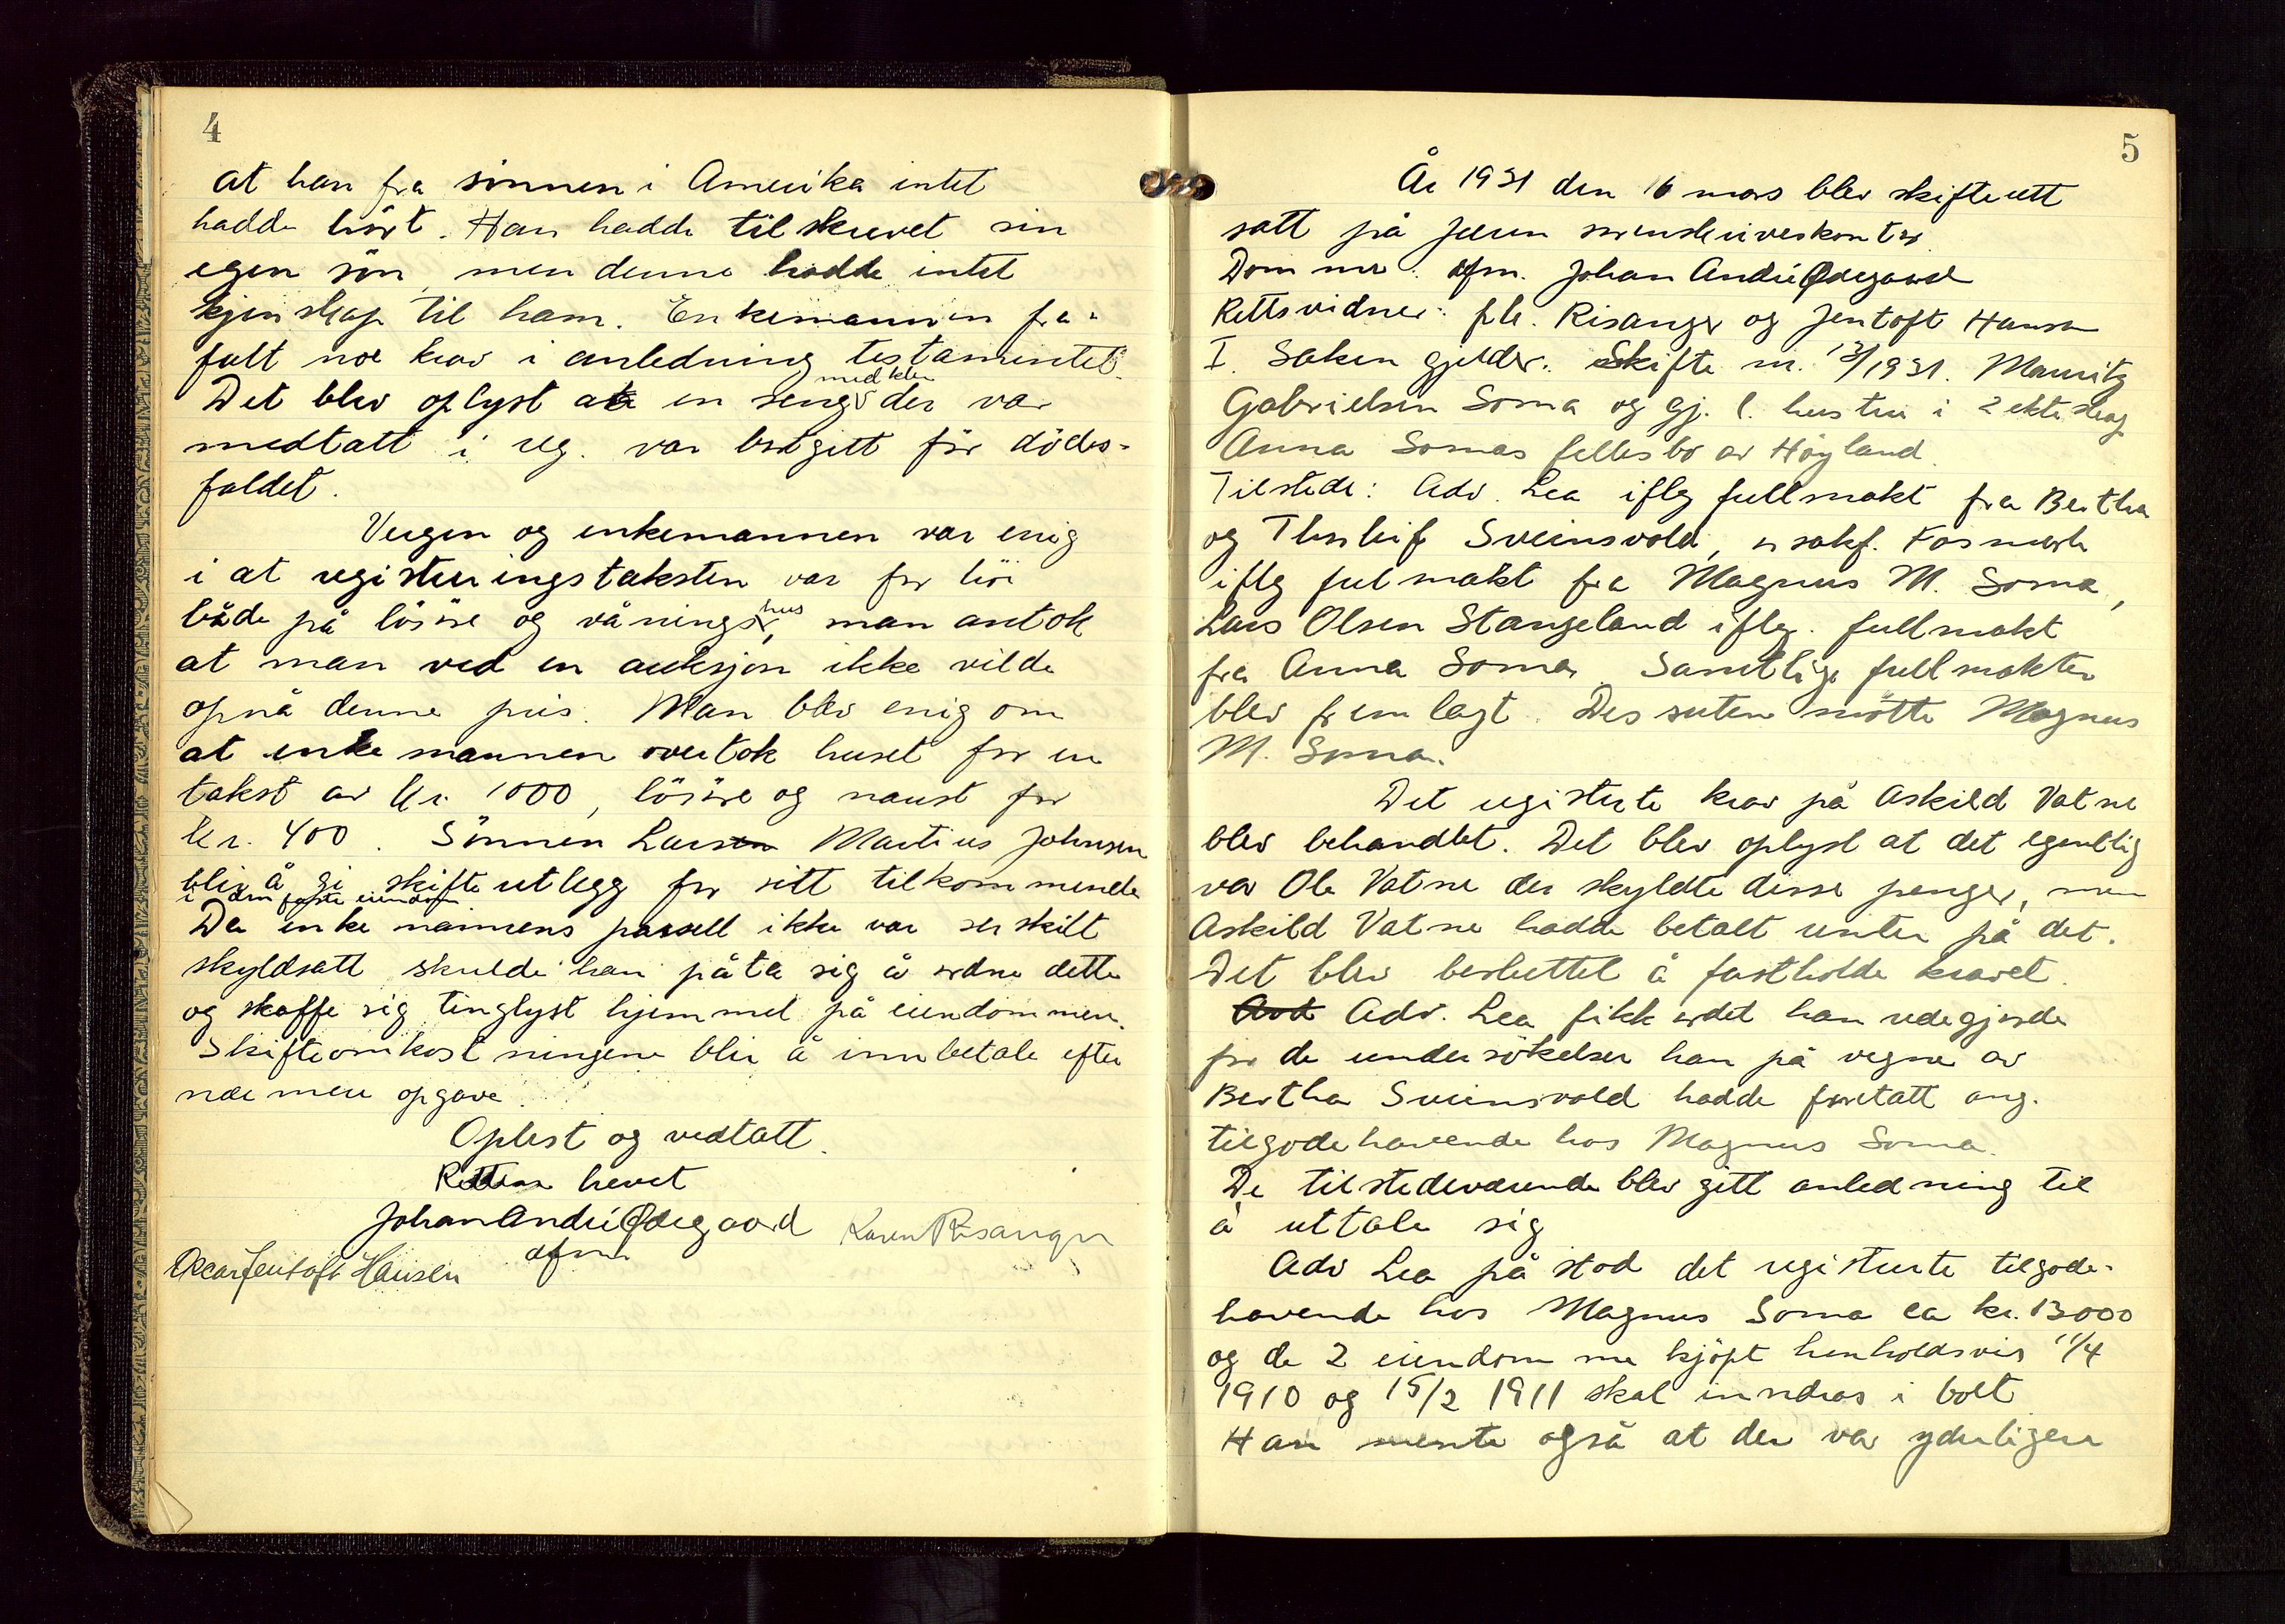 4
at han fra sønnen i Amerika intet
hadde hørt. Han hadde tilskrevet sin
egen søn, men denne hadde intet
kjenskap til ham. Enkemannen fra-
falt noe krav i anledning testamentet.
Det blev oplyst at en seng med klær der var
medtatt i reg. var bortgitt før døds-
faldet.
Vergen og enkemannen var enig
i at registreringstaksten var for høi
både på løsøre og våningshus, man antok
at man ved en auksjon ikke vilde
opnå denne pris. Man blev enig om
at enkemannen overtok huset for en
takst av kr. 1000, løsøre og naust for
kr. 400. Sønnen Lars Martius Johnsen
blir å gi skifteutlegg for sitt tilkommende
i den faste eiendom
Da enkemannens parsell ikke var serskilt
skyldsatt skulde han påta sig å ordne dette
og skaffe sig tinglyst hjemmel på eiendommen.
Skifteomkostningene blir å innbetale efter
nærmere opgave.
Oplest og vedtatt.
Retten hevet
Johan André Ødegaard Karen Risanger
dfm
Oscar Jentoft Hansen
5
År 1931 den 16 mars blev skifterett
satt på Jæren sorenskriverkontor.
Dommer: dfm. Johan André Ødegaard
Rettsvidner: frk. Risanger og Jentoft Hansen
I. Saken gjelder: Skifte nr. 13/1931. Mauritz
Gabrielsen Soma og gj. l. hustru i 2 ekteskap
Anna Somas fellesbo av Høyland.
Tilstede: Adv. Lea ifleg fullmakt fra Bertha
og Thorleif Sveinsvold, o.r.sakf. Fosmark
ifleg fulmakt fra Magnus M. Soma,
Lars Olsen Stangeland ifleg. fullmakt
fra Anna Soma. Samtlige fullmakter
blev fremlagt. Dessuten møtte Magnus
M. Soma.
Det registrerte krav på Askild Vatne
blev behandlet. Det blev oplyst at det egentlig
var Ole Vatne der skyldte disse penger, men
Askild Vatne hadde betalt renter på det.
Det blev besluttet å fastholde kravet.
Adv. Lea fikk ordet han redegjorde
for de undersøkelser han på vegne av
Bertha Sveinsvold hadde foretatt ang.
tilgodehavende hos Magnus Soma.
De tilstedeværende blev gitt anledning til
å uttale sig
Adv Lea påstod det registrerte tilgode-
havende hos Magnus Soma ca kr. 13000
og de 2 eiendomme kjøpt henholdsvis 11/4
1910 og 15/2 1911 skal inndras i boet
Han mente også at der var yderligere